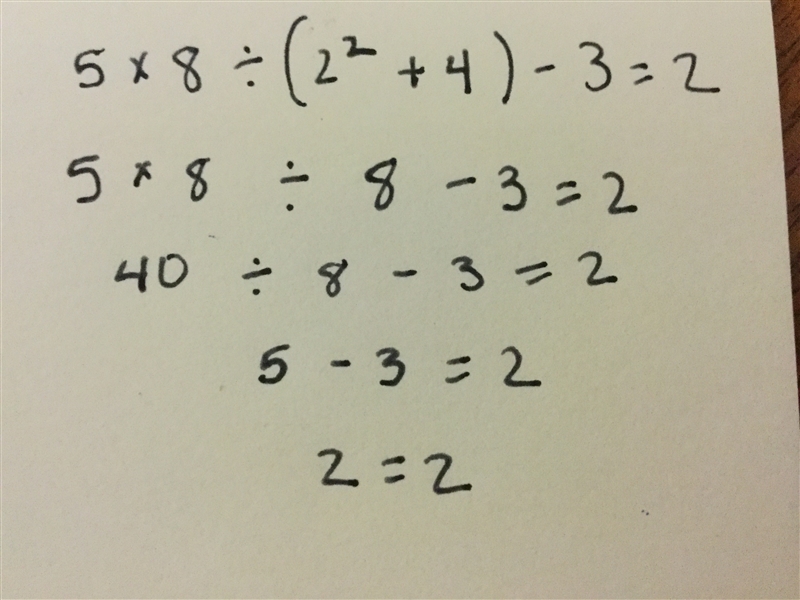 5 × 8 ÷ (2² + 4) - 3 = 2
5 × 8 ÷ 8 - 3 = 2
40 ÷ 8 - 3 = 2
5 - 3 = 2
2 = 2